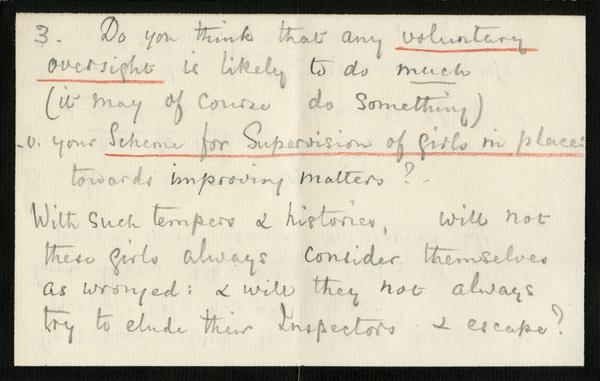 3. Do you think that any voluntary
oversight is likely to do much
(it may of course do something)
-v. your Scheme for Supervision of girls in places
towards improving matters? -
With such tempers & histories, will not
these girls always consider themselves
as wronged: & will they not always
try to elude their Inspectors & escape?